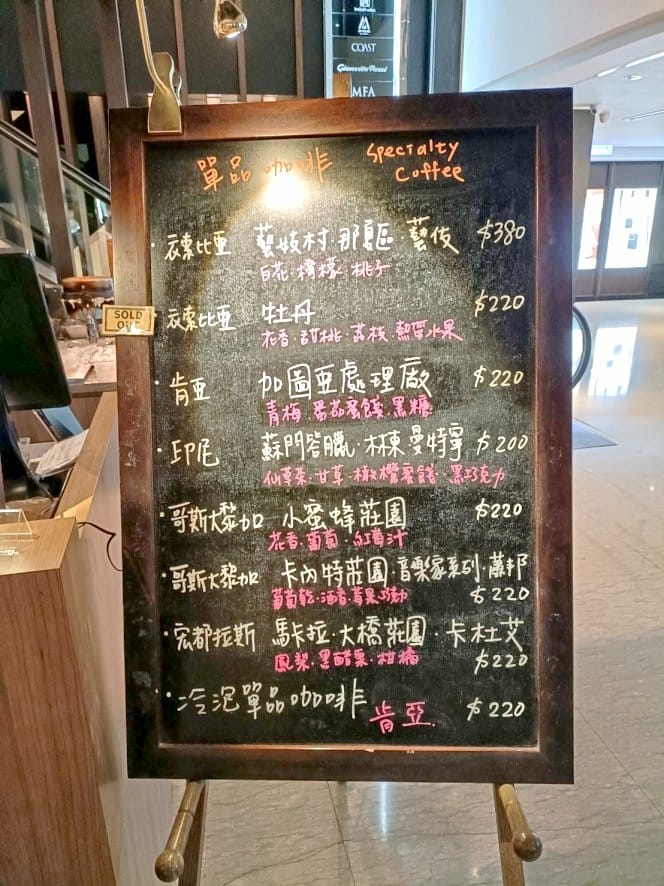 COAST
Gianvito Rossi
MFA
單品咖啡 Specialty Coffee
衣索比亞 藝妓村·那夏·藝伎 $380
白花·檸檬·桃子
SOLD OUT
衣索比亞 牡丹 $220
花香·甜桃·荔枝·熱帶水果
肯亞 加圖亞處理廠 $220
青梅·番茄蜜餞·黑糖
印尼 蘇門答臘·林東曼特寧 $200
仙草茶·甘草·橄欖蜜餞·黑巧克力
哥斯大黎加 小蜜蜂莊園 $220
花香·葡萄·紅萄汁
哥斯大黎加 卡內特莊園·音樂家系列·蕭邦
葡萄乾·酒香·莓果巧克力 $220
宏都拉斯 馬卡拉·大橋莊園·卡杜艾
鳳梨·黑醋栗·柑橘 $220
冷泡單品咖啡 肯亞 $220